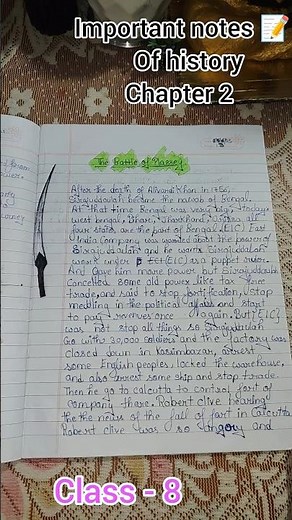 Important notes 📝
Of history
Chapter 2
The Battle of Plassey
After the death of Alivardi Khan in 1756,
Sirajuddaulah became the nawab of Bengal.
At that time Bengal was very big, today
west bengal, Bihar, Jharkhand, Orissa all
four states are the part of bengal. (EIC) East
India Company was worried about the power of
Sirajuddaulah and he wants Sirajuddaulah
work under (EIC) as a puppet ruler.
And Gave him more power but Sirajuddaulah
Cancelled some old power like tax free
trade, and said to stop fortification, stop
meddling in the political affairs and start
to pay revenues once again. But (EIC)
was not stop all things so Sirajuddaulah
Go with 30,000 soldiers and the factory was
closed down in Kasimbazar, arrest
some English peoples, locked the warehouse,
and also arrest some ship and stop trade.
Then he go to calcutta to control fort of
Company there. Robert clive hearing
the the news of the fall of fort in Calcutta
Robert clive was so angry and
Class - 8